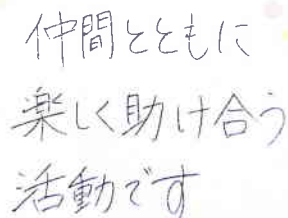 仲間とともに
楽しく助け合う
活動です